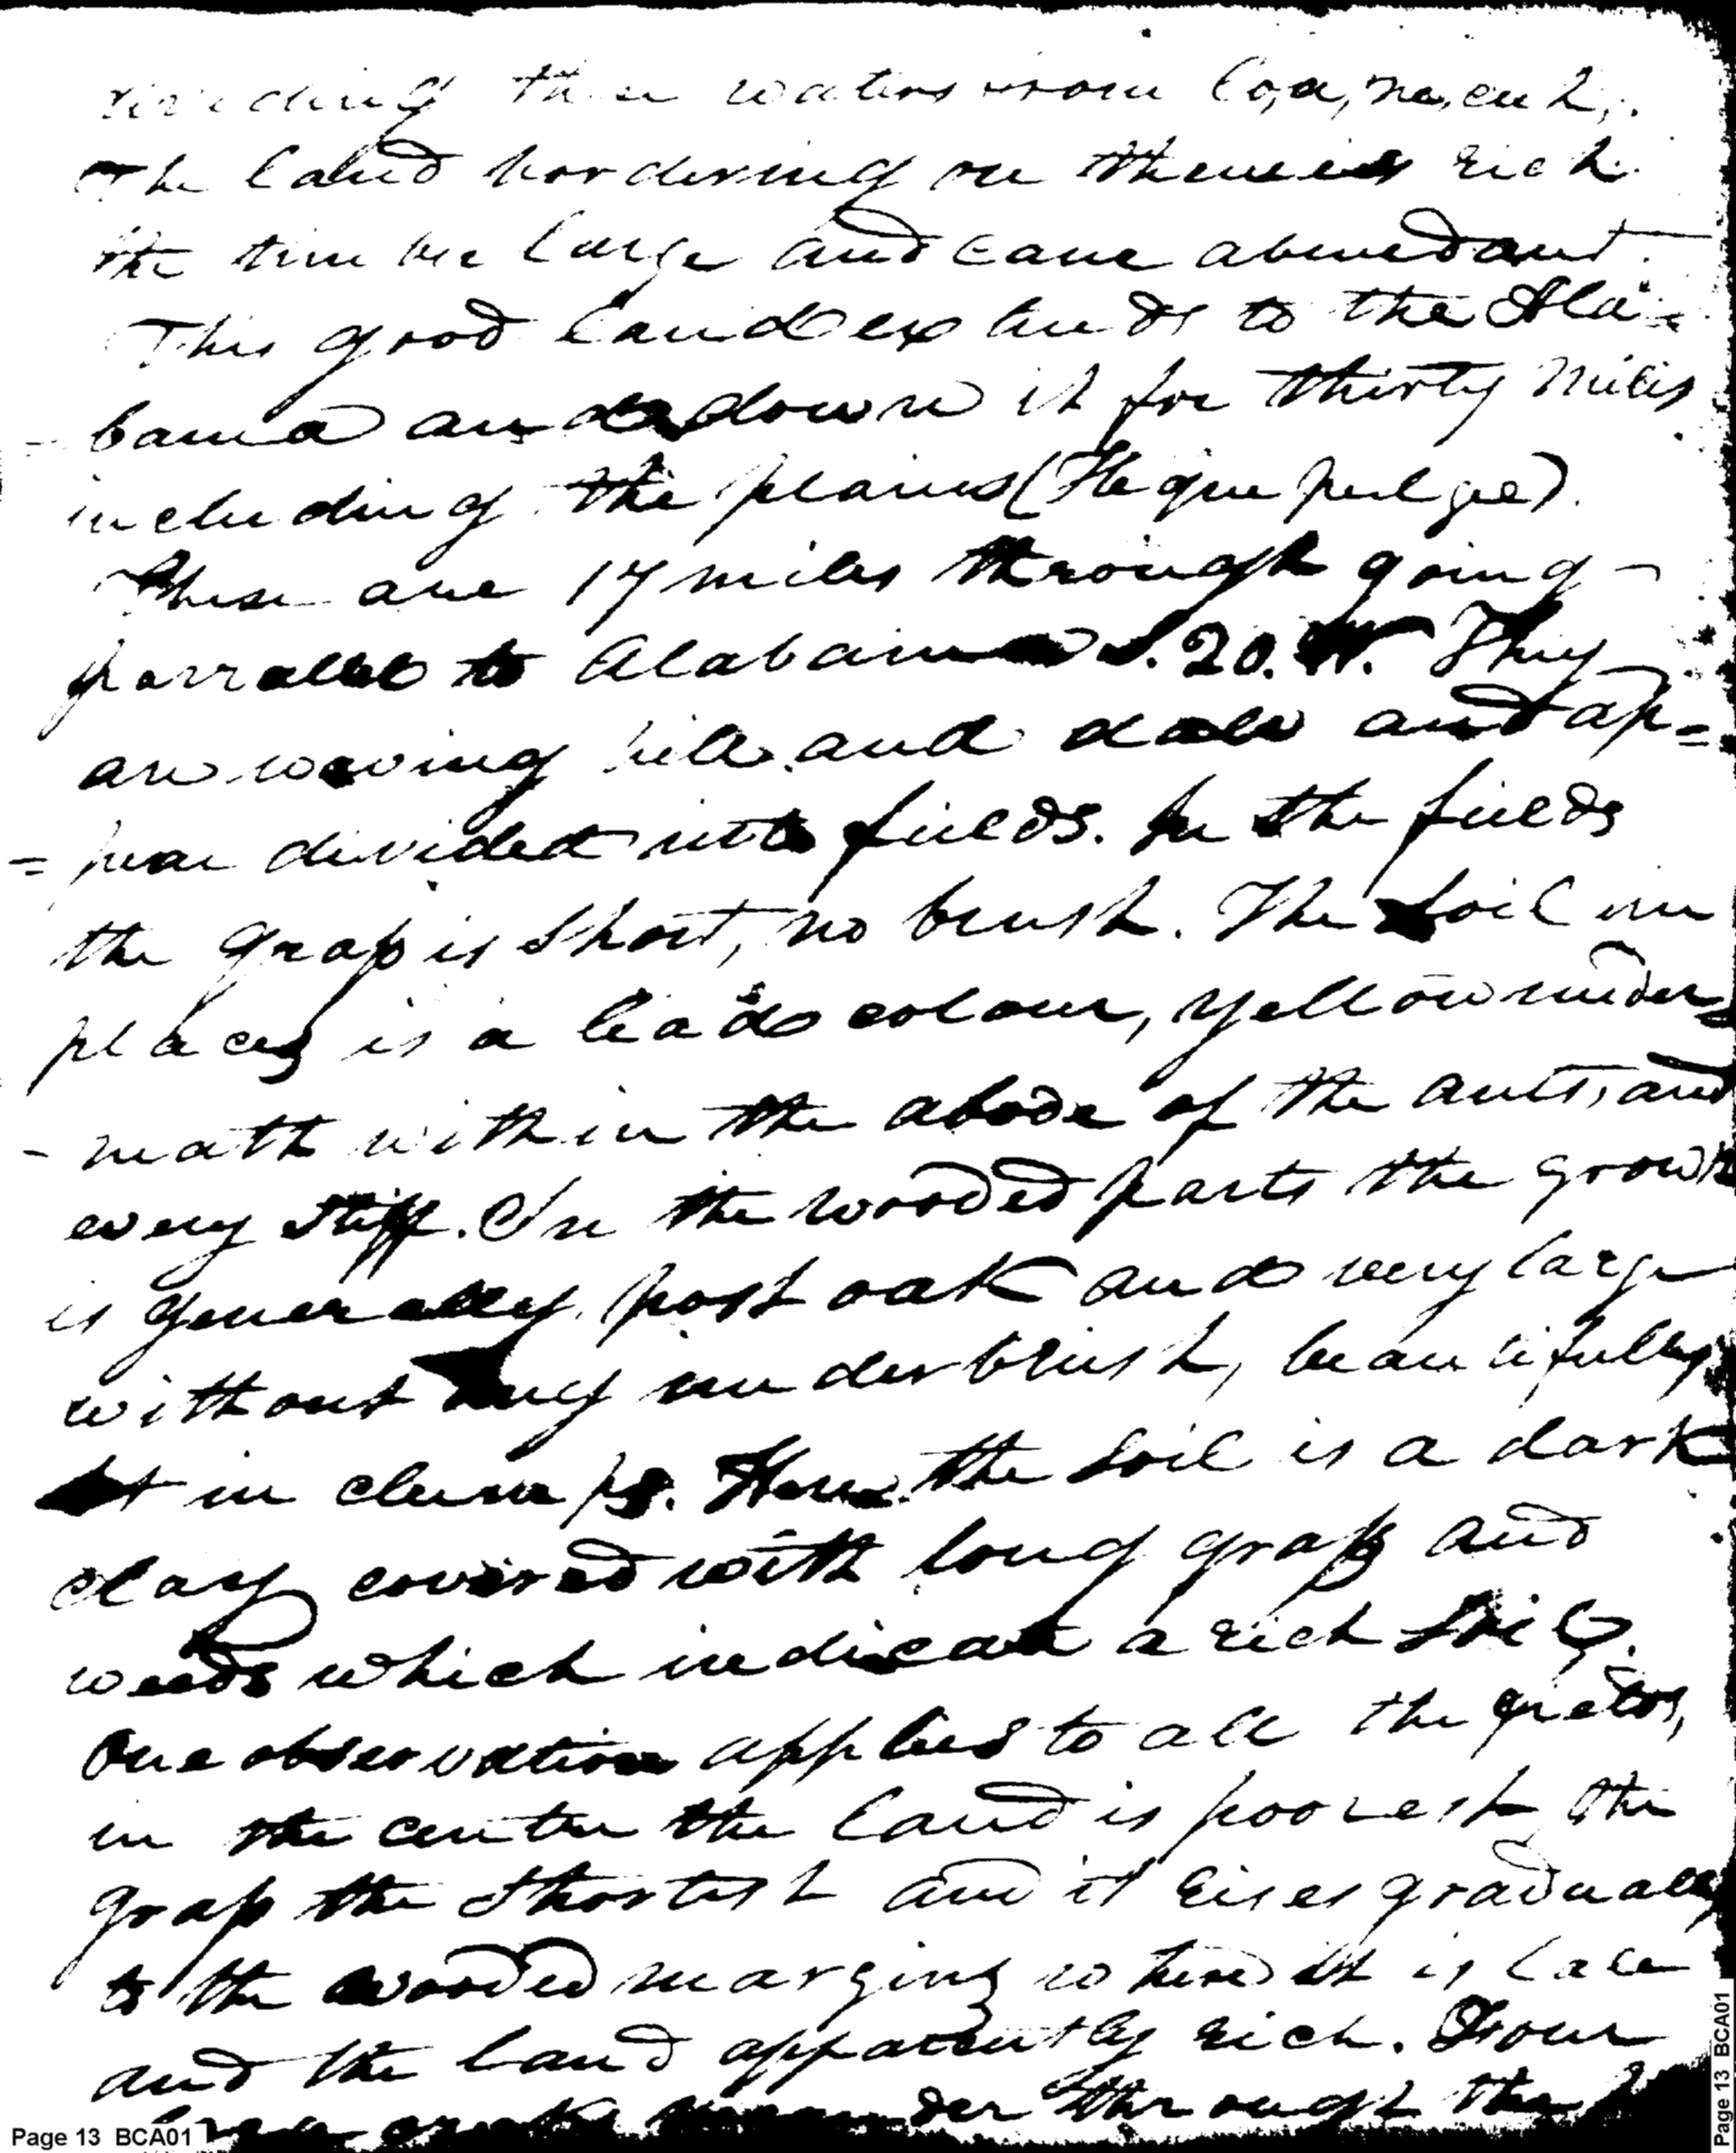 dividing their waters from Co,o,ne,cuh,.
The land bordering on them is rich
the timber large and cane abundant.
This good land extends to the Ala=
-bama and down it for thirty miles
including the plains (He que pul gee).
These are 17 miles through going -
parrallel to Alabama S. 20. W. They
are waving hill and dale and ap=
=pear divided into fields. In the fields
the grass is short, no brush. The soil in
places is a lead colour, yellow under=
-neath within the abode of the ants, and
very stiff. In the wooded parts the growth
is generally post oak and very large
without any underbrush, beautifully
set in clumps. Here the soil is a dark
clay covered with long grass and
weeds which indicate a rich soil.
One observation applies to all the fields,
in the center the land is poorest the
grass the shortest and it rises gradually
to the wooded margins where it is tall
and the land apparently rich. Four
large creeks meander through the
Page 13 BCA01
Page 13 BCA01